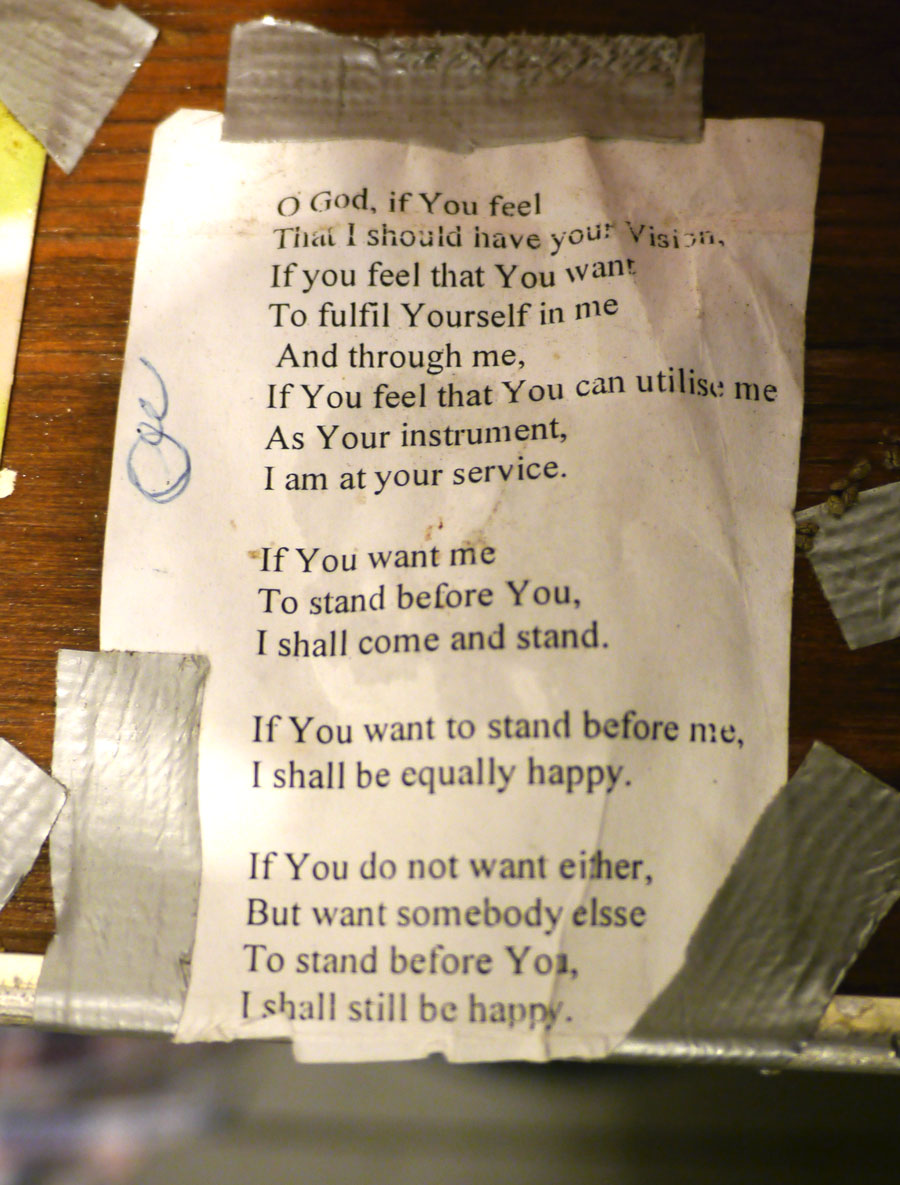 O God, if You feel
That I should have your Vision,
If you feel that You want
To fulfil Yourself in me
And through me,
If You feel that You can utilise me
As Your instrument,
I am at your service.
If You want me
To stand before You,
I shall come and stand.
If You want to stand before me,
I shall be equally happy.
If You do not want either,
But want somebody elsse
To stand before You,
I shall still be happy.